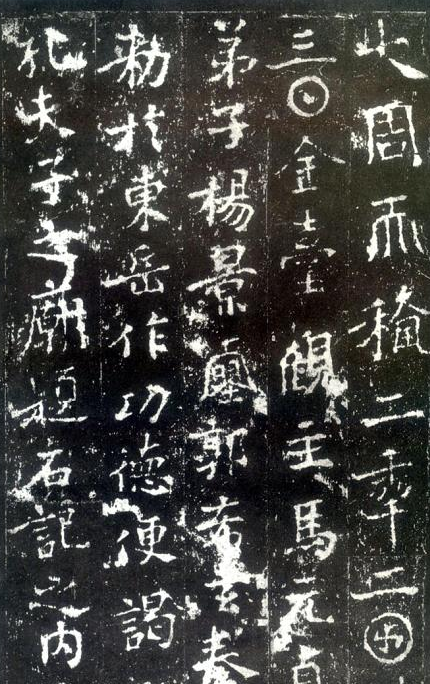 大周𠀑𥠢二𠡦二𠥱
三𡆠金臺觀主馬元貞
弟子楊景𡔈郭希玄奉
勅於東岳作功德便謁
孔夫子之廟題石記之内